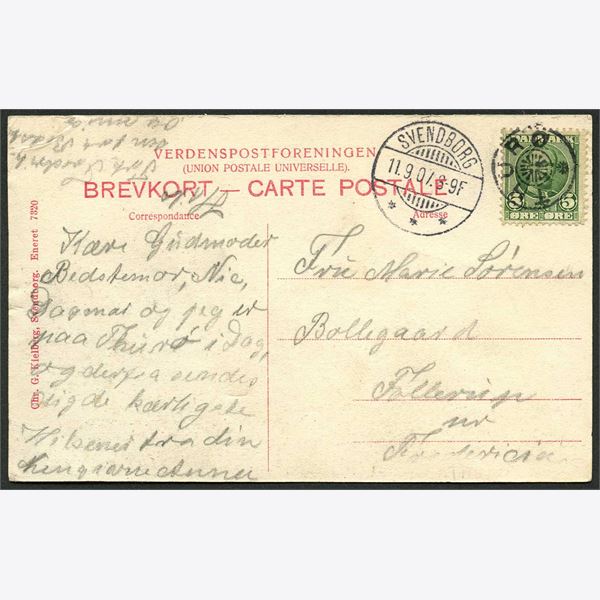 VERDENSPOSTFORENINGEN
(UNION POSTALE UNIVERSELLE).
BREVKORT — CARTE POSTALE
Correspondance
Adresse
SVENDBORG
11.9.07.8-9F
DANMARK
5 5
ØRE ØRE
Kære Gudmoder
Bedstemor, Nic,
Dagmar og jeg er
paa Thurø i Dag,
og derfra sendes
dig de kærligste
Hilsener fra din
Fru Marie Sørensen
Bollegaard
Follerup
nr
Fredericia
Chr. G. Kielberg, Svendborg. Eneret 7320